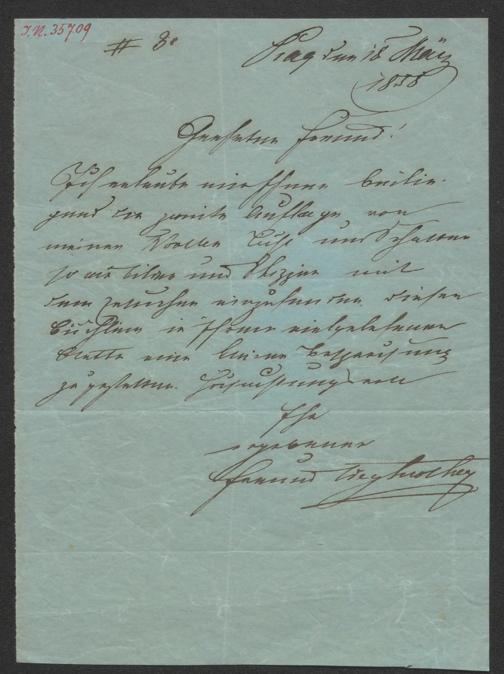 I.N. 35709
# 8.
Prag den 18 März
1855
Geehrter Freund!
Ich erlaube mir Ihnen beilie-
gend die zweite Auflage von
meinen Werken Licht und Schatten
so wie Bilder und Skizzen mit
dem Ersuchen einzusenden diesen
Büchlein in Ihrem vielgelesenen
Blatte eine kleine Besprechung
zu gestatten. Hochachtungsvoll
Ihr
ergebener
Freund